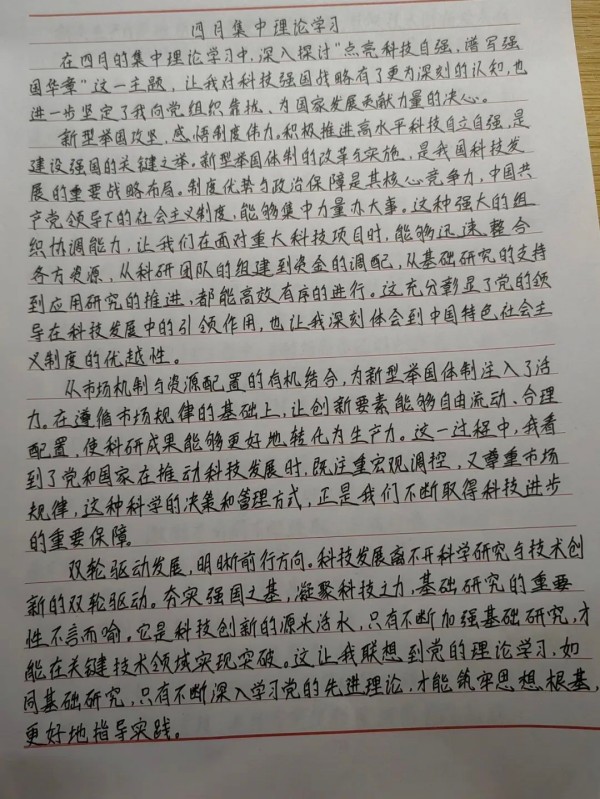 四月集中理论学习
在四月的集中理论学习中,深入探讨“点亮科技自强,谱写强
国华章”这一主题,让我对科技强国战略有了更为深刻的认知,也
进一步坚定了我向党组织靠拢、为国家发展贡献力量的决心。
新型举国攻坚,感悟制度伟力。积极推进高水平科技自立自强,是
建设强国的关键之举。新型举国体制的改革与实施,是我国科技发
展的重要战略布局。制度优势与政治保障是其核心竞争力,中国共
产党领导下的社会主义制度,能够集中力量办大事。这种强大的组
织协调能力,让我们在面对重大科技项目时,能够迅速整合
各方资源,从科研团队的组建到资金的调配,从基础研究的支持
到应用研究的推进,都能高效有序的进行。这充分彰显了党的领
导在科技发展中的引领作用,也让我深刻体会到中国特色社会主
义制度的优越性。
从市场机制与资源配置的有机结合,为新型举国体制注入了活
力。在遵循市场规律的基础上,让创新要素能够自由流动、合理
配置,使科研成果能够更好地转化为生产力。这一过程中,我看
到了党和国家在推动科技发展时,既注重宏观调控,又尊重市场
规律,这种科学的决策和管理方式,正是我们不断取得科技进步
的重要保障。
双轮驱动发展,明晰前行方向。科技发展离不开科学研究与技术创
新的双轮驱动。夯实强国之基,凝聚科技之力,基础研究的重要
性不言而喻。它是科技创新的源头活水,只有不断加强基础研究,才
能在关键技术领域实现突破。这让我联想到党的理论学习,如
同基础研究,只有不断深入学习党的先进理论,才能筑牢思想根基,
更好地指导实践。